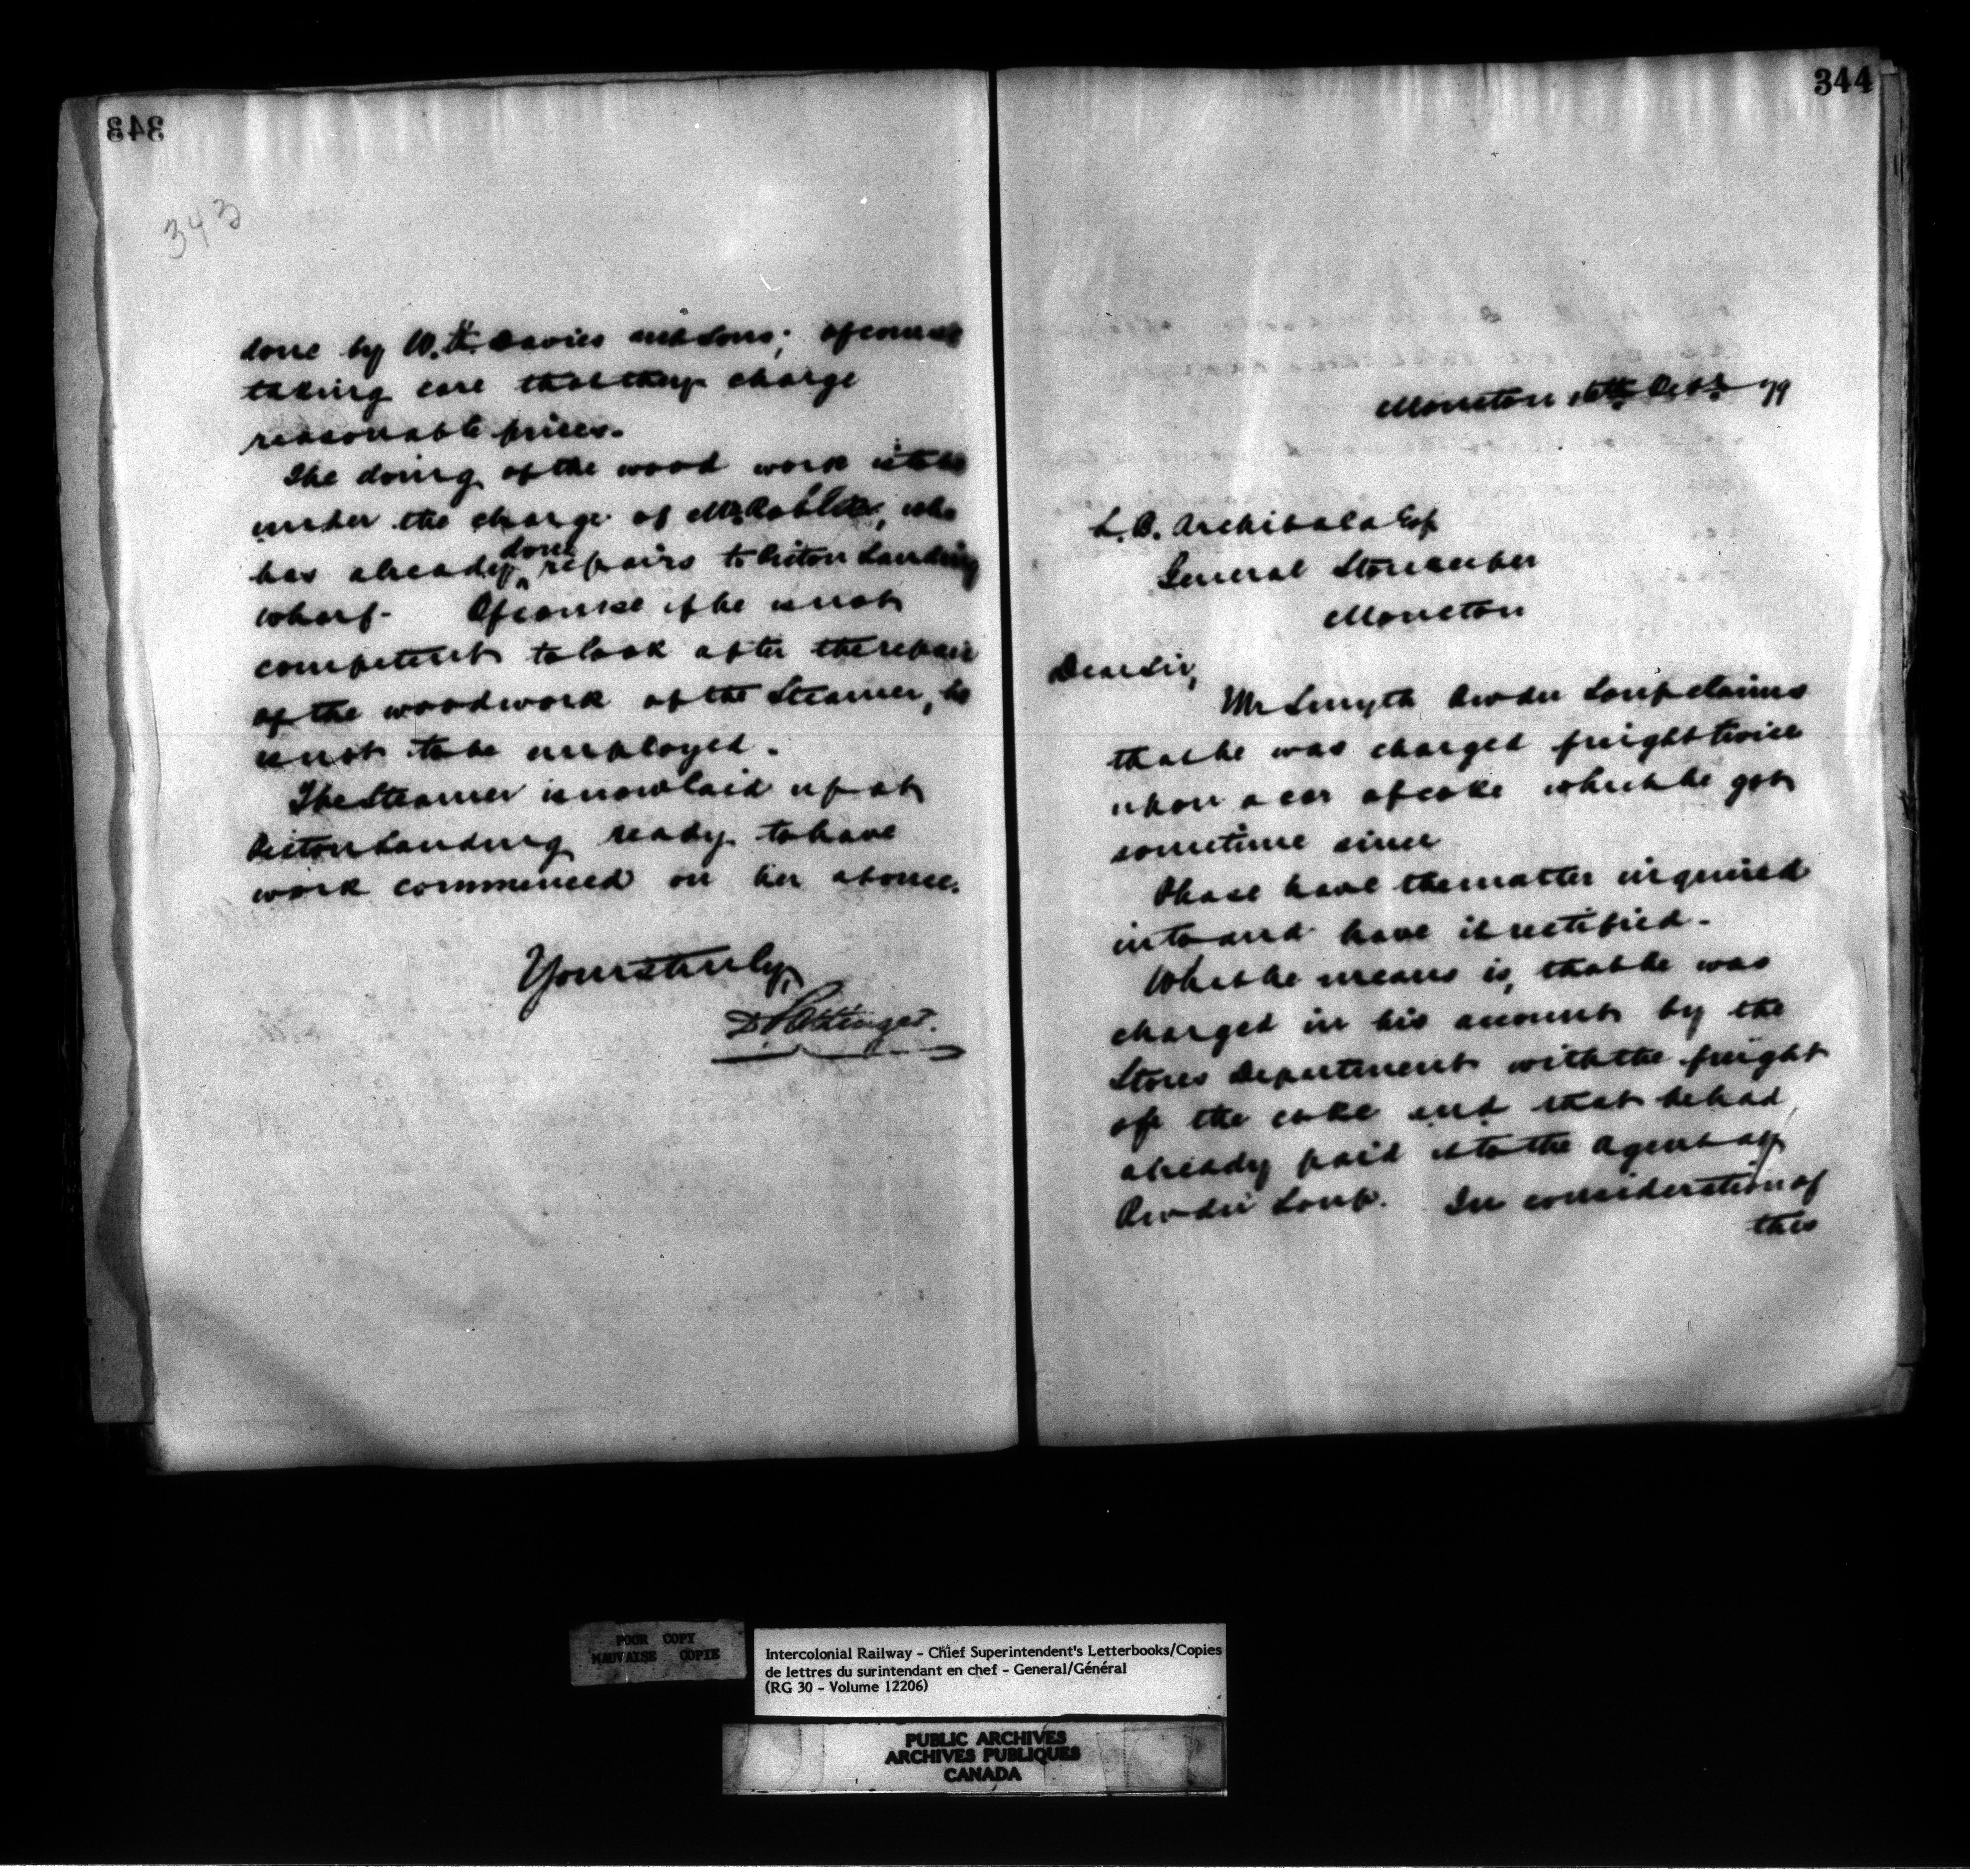 343
343
done by W. H. Davies and Sons; of course
taking care that they charge
reasonable prices.
The doing of the wood work is to be
under the charge of Mr. , who
has already done repairs to Picton Landing
wharf. Of course if he is not
competent to look after the repair
of the woodwork of the Steamer, he
is not to be employed.
The Steamer is now laid up at
Picton Landing ready to have
work commenced on her at once.
Yours truly,
D. Pottinger.
344
Moncton 16th Decr 79
L. B. Archibald Esq
General Storekeeper
Moncton
Dear Sir,
Mr Smyth River du Loup claims
that he was charged freight twice
upon a car of coke which he got
sometime since
Please have the matter inquired
into and have it rectified.
What he means is, that he was
charged in his account by the
Stores Department with the freight
of the coke and that he had
already paid it to the Agent at
du Loup. In consideration of
this
POOR COPY
MAUVAISE COPIE
Intercolonial Railway - Chief Superintendent's Letterbooks/Copies
de lettres du surintendant en chef - General/Général
(RG 30 - Volume 12206)
PUBLIC ARCHIVES
ARCHIVES PUBLIQUES
CANADA